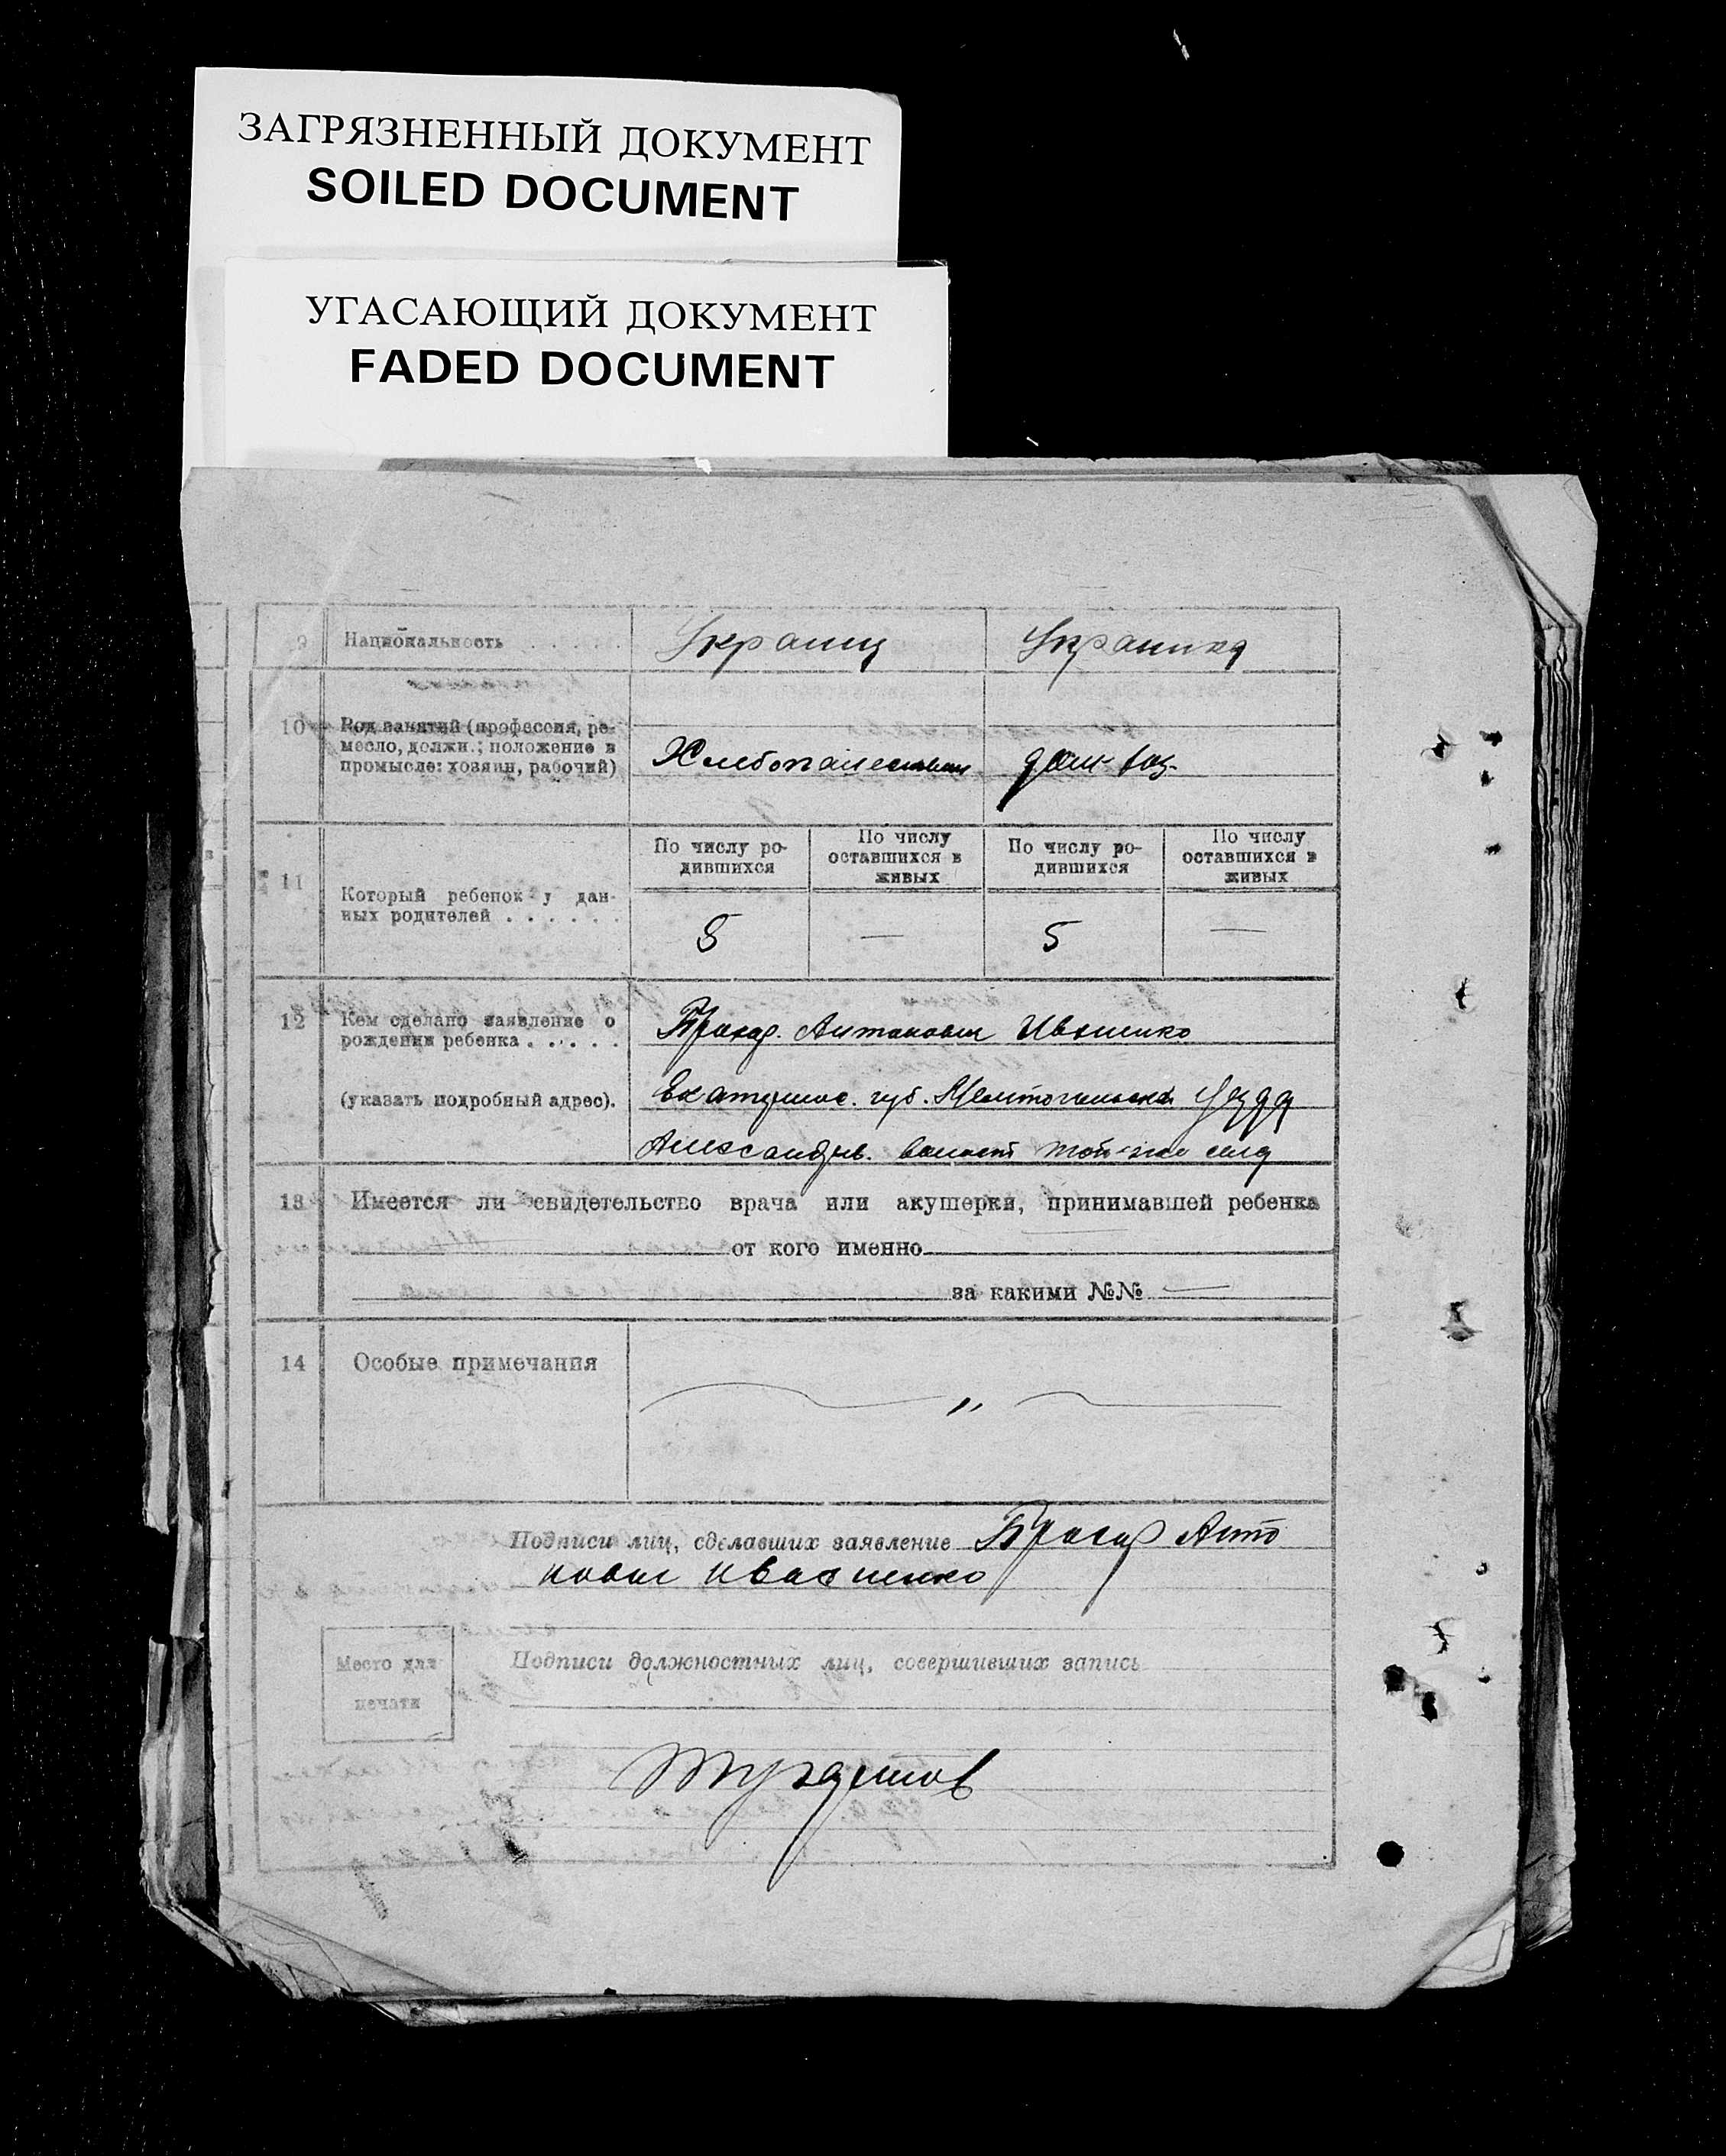 ЗАГРЯЗНЕННЫЙ ДОКУМЕНТ
SOILED DOCUMENT
УГАСАЮЩИЙ ДОКУМЕНТ
FADED DOCUMENT
9 Национальность . . . . . Украинц Украинка
10 Род занятий (профессия, ре-
месло, должн.; положение в
промысле: хозяин, рабочий)
Хлебопашество дом. хоз.
11 Который ребенок у дан-
ных родителей . . . . . .
По числу ро-
дившихся
По числу
оставшихся в
живых
По числу ро-
дившихся
По числу
оставшихся в
живых
5 — 5 —
12 Кем сделано заявление о
рождении ребенка . . . . .
(указать подробный адрес).
Антонович
губ. Уезда
Александров. волост той-же села
13 Имеется ли свидетельство врача или акушерки, принимавшей ребенка
от кого именно
за какими №№ —
14 Особые примечания
〃
Подписи лиц, сделавших заявление Анто
нович
Место для
печати
Подписи должностных лиц, совершивших запись